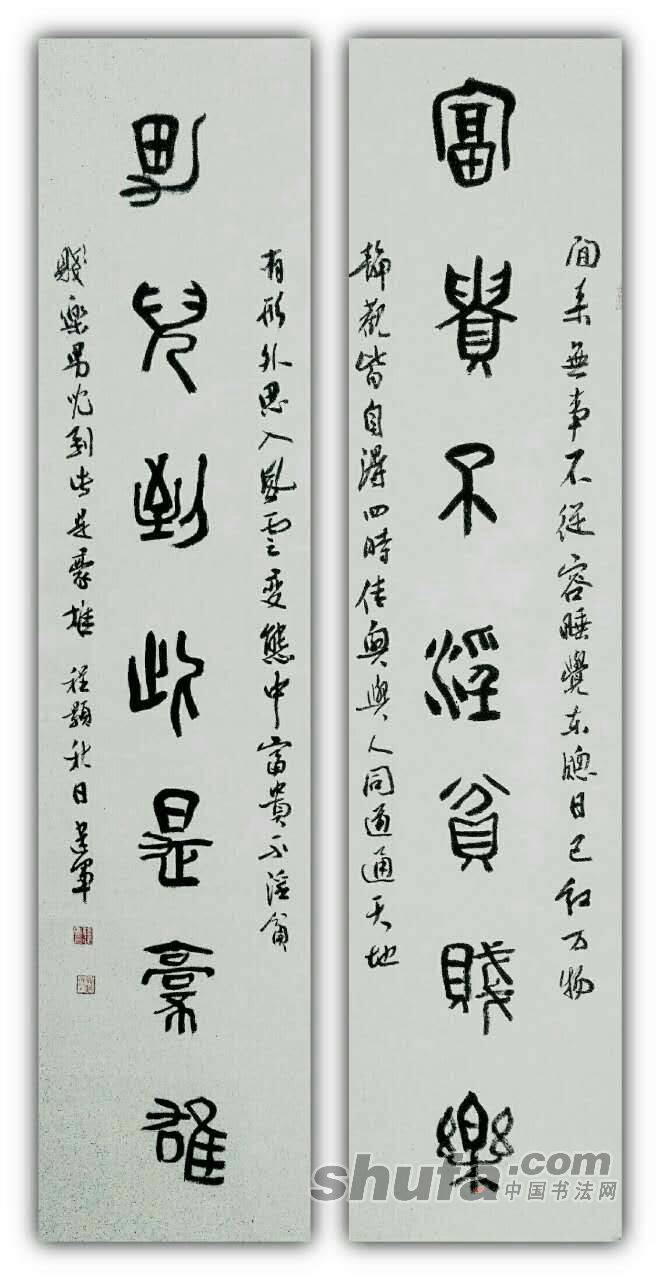 富貴不淫貧賤樂
男兒到此是豪雄
閒来無事不從容睡覺东牕日已红万物
静觀皆自得四時佳興與人同道通天地
有形外思入風雲变態中富貴不淫貧
賤樂男兒到此是豪雄 程顥秋日建軍
shufa.com
中国书法网